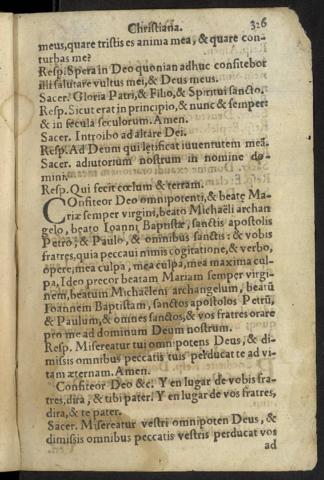 Christiana. 326
meus,quare tristis es anima mea, & quare con-
turbas me?
Resp. Spera in Deo quonian adhuc confitebor
illi salutare vultus mei, & Deus meus.
Sacer. Gloria Patri, & Filio, & Spiritui sancto.
Resp. Sicut erat in principio, & nunc & semper:
& in secula seculorum. Amen.
Sacer. Introibo ad altare Dei.
Resp. Ad Deum qui letificat iuuentutem meã.
Sacer. adiutorium nostrum in nomine do-
mini.
Resp. Qui fecit cœlum & terram.
Confiteor Deo omnipotenti, & beatę Ma-
riæ semper virgini, beato Michaëli archan
gelo, beato Ioanni Baptistæ, sanctis apostolis
Petro, & Paulo, & omnibus sanctis: & vobis
fratres,quia peccaui nimis cogitatione, & verbo,
opere,mea culpa, mea culpa, mea maxima cul-
pa, Ideo precor beatam Mariam semper virgi-
nem, beatum Michaëlem archangelum, beatũ
Ioannem Baptistam, sanctos apostolos Petrũ,
& Paulum, & omnes sanctos, & vos fratres orare
pro me ad dominum Deum nostrum.
Resp. Misereatur tui omnipotens Deus, & di-
missis omnibus peccatis tuis perducat te ad vi-
tam æternam. Amen.
Confiteor Deo &c. Y en lugar de vobis fra-
tres,dira, & tibi pater. Y en lugar de vos fratres,
dira, & te pater.
Sacer. Misereatur vestri omnipoten Deus, &
dimissis omnibus peccatis vestris perducat vos
ad